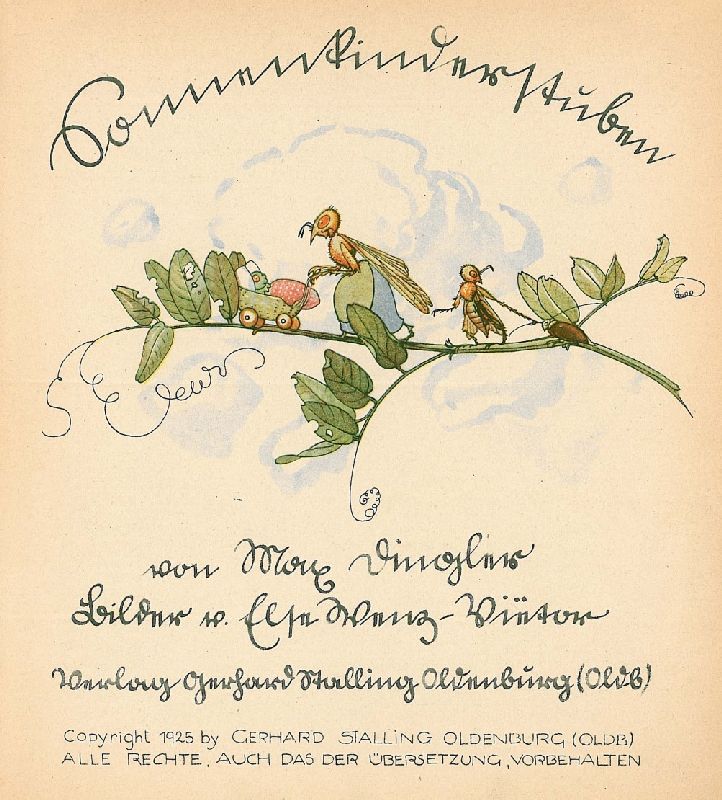 Sonnenkinderstuben
von Max Dingler
Bilder v. Else Wenz-Viëtor
Verlag Gerhard Stalling Oldenburg (Oldb)
Copyright 1925 by GERHARD STALLING OLDENBURG (OLDB)
ALLE RECHTE, AUCH DAS DER ÜBERSETZUNG, VORBEHALTEN